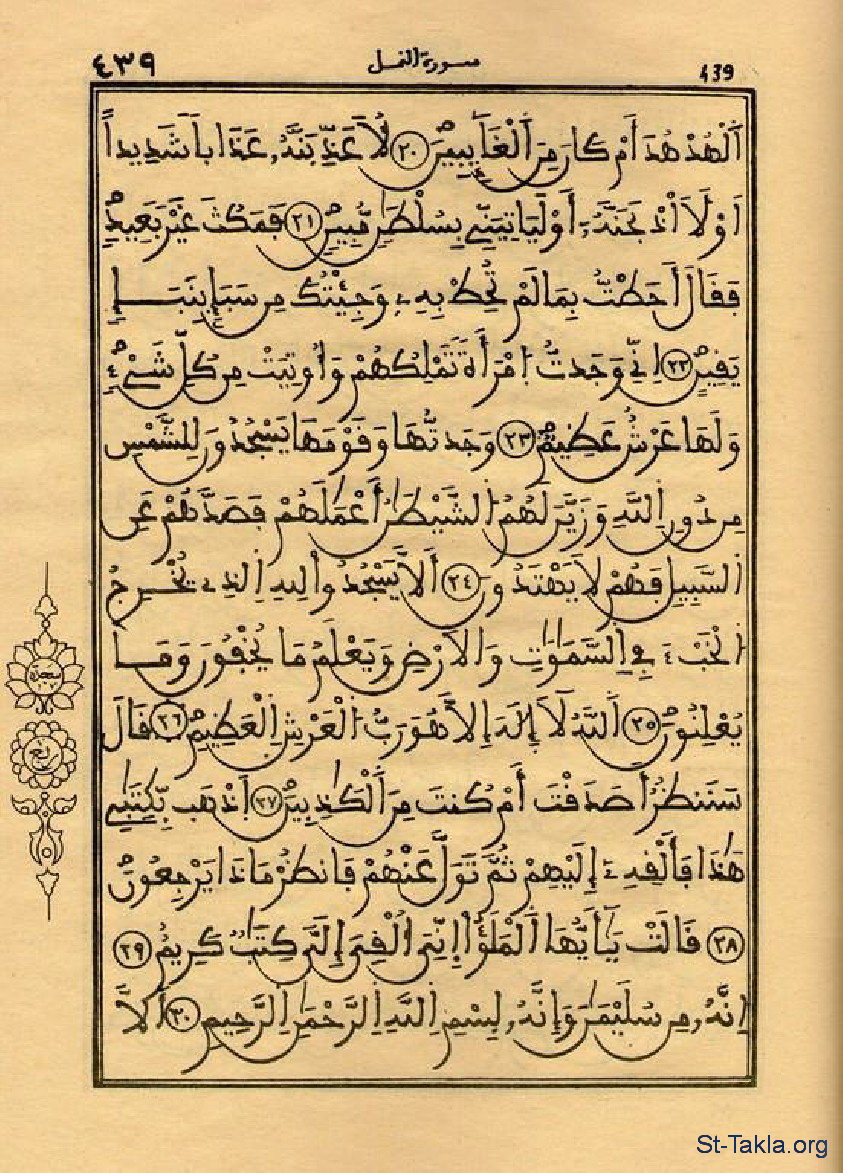 ٤٣٩ سورة النمل 439
اَلْهُدْهُدَ أَمْ كَانَ مِنَ اَلْغَآئِبِينَ ٢٠ لَأُعَذِّبَنَّهُۥ عَذَاباً شَدِيداً
اَوْ لَأَاْذْبَحَنَّهُۥٓ أَوْ لَيَاتِيَنِّے بِسُلْطَٰنٍ مُّبِينٍ ٢١ فَمَكُثَ غَيْرَ بَعِيدٍ
فَقَالَ أَحَطْتُ بِمَا لَمْ تُحِطْ بِهِۦ وَجِئْتُكَ مِن سَبَإٍ بِنَبَإٍ
يَقِينٍ ٢٢ اِنِّے وَجَدتُّ اُمْرَأَةً تَمْلِكُهُمْ وَأُوتِيَتْ مِن كُلِّ شَےْءٍ
وَلَهَا عَرْشٌ عَظِيمٌ ٢٣ وَجَدتُّهَا وَقَوْمَهَا يَسْجُدُونَ لِلشَّمْسِ
مِن دُونِ اِللَّهِ وَزَيَّنَ لَهُمُ اُلشَّيْطَٰنُ أَعْمَٰلَهُمْ فَصَدَّهُمْ عَنِ
اِلسَّبِيلِ فَهُمْ لَا يَهْتَدُونَ ٢٤ أَلَّا يَسْجُدُواْ لِلهِ اِلذِے يُخْرِجُ
اُلْخَبْءَ فِے اِلسَّمَٰوَٰتِ وَالَارْضِ وَيَعْلَمُ مَا يُخْفُونَ وَمَا
يُعْلِنُونَ ٢٥ اَللَّهُ لَآ إِلَٰهَ إِلَّا هُوَ رَبُّ اُلْعَرْشِ اِلْعَظِيمِ ٢٦ قَالَ
سَنَنظُرُ أَصَدَقْتَ أَمْ كُنتَ مِنَ اَلْكَٰذِبِينَ ٢٧ اَذْهَب بِّكِتَٰبِے
هَٰذَا فَأَلْقِهِۦٓ إِلَيْهِمْ ثُمَّ تَوَلَّ عَنْهُمْ فَانظُرْ مَاذَا يَرْجِعُونَ
٢٨ قَالَتْ يَٰٓأَيُّهَا اَلْمَلَؤُاْ اِنِّيَ أُلْقِيَ إِلَيَّ كِتَٰبٌ كَرِيمٌ ٢٩
اِنَّهُۥ مِن سُلَيْمَٰنَ وَإِنَّهُۥ بِسْمِ اِللَّهِ اِلرَّحْمَٰنِ اِلرَّحِيمِ ٣٠ أَلَّا
St-Takla.org